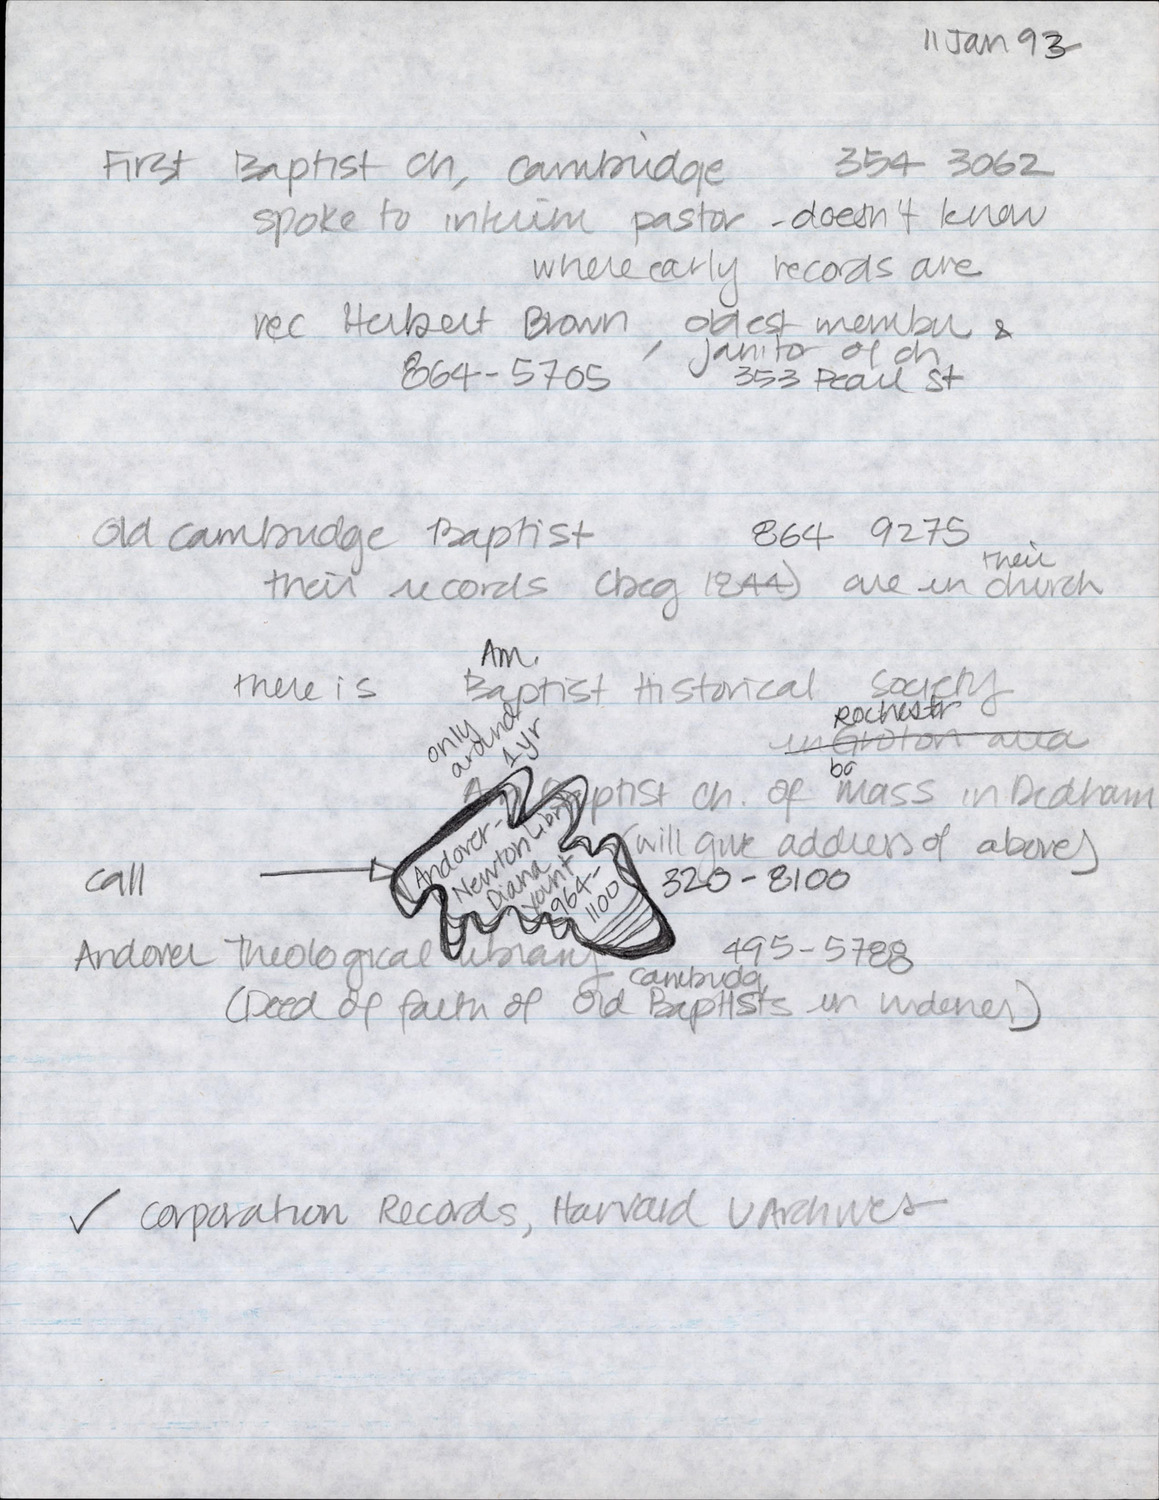 11 Jan 93
First Baptist Ch, Cambridge 354 3062
spoke to interim pastor - doesn't know
where early records are
rec Herbert Brown, oldest member &
janitor of ch
864-5705 353 Pearl St
Old Cambridge Baptist 864 9275
their
their records (beg 1844) are in church
Am.
there is Baptist Historical Society
Rochester
in Groton area
only
around
1 yr
Baptist Ch. of Mass in Dedham
(will give address of above)
call 320-8100
Andover-
Newton Libr
Diana
Yount
964-
1100
Andover Theological Library 495-5788
Cambridg
(Deed of faith of Old Baptists in Widener)
✓ Corporation Records, Harvard U Archives